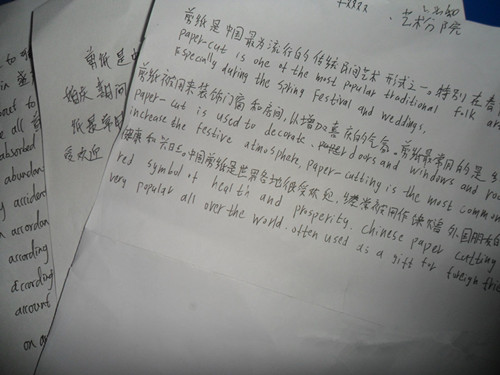 艺术学院
剪纸是中国最为流行的传统民间艺术形式之一。特别在春
paper-cut is one of the most popular traditional folk ar
Especially during the Spring Festival and weddings,
剪纸被用来装饰门窗和房间,以增加喜庆的气氛。剪纸最常用的是
paper-cut is used to decorate doors and windows and roo
increase the festive atmosphere. paper-cutting is the most common
健康和兴旺。中国剪纸是世界各地很受欢迎,经常被用作馈赠外国朋友的
red symbol of health and prosperity. Chinese paper cutting
very popular all over the world. often used as a gift for foreign frie
剪纸是
婚庆期间
纸最常用
受欢迎
to
in
all
absorbed
abundan
accident
accordan
according
according
account
on